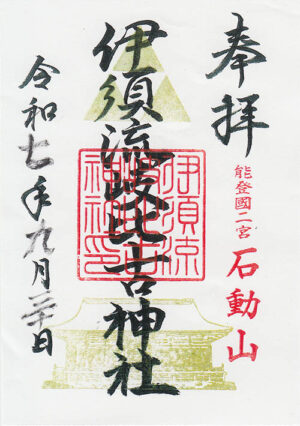 奉拝
能登國二宮
石動山
伊須流岐比古神社
伊須流岐比古神社印
令和七年九月二十日